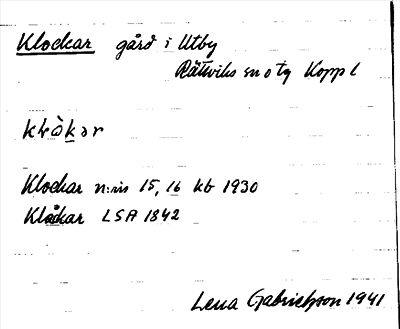 Klockar gård i Utby
Rättviks sn o tg Koppl
klòkar
Klockar n:ris 15, 16 kb 1930
Klåckar LSA 1842
Lena Gabrielsson 1941